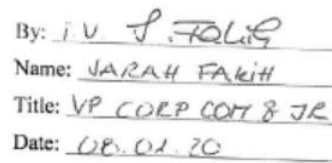 By: i.V
Name: JARAH FAKIH
Title: VP CORP COM & JR
Date: 08.01.20